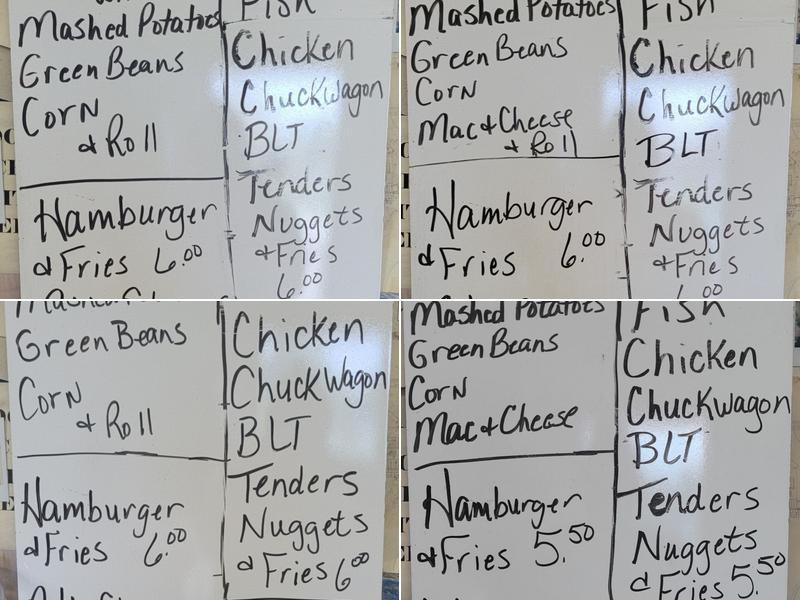 Mashed Potatoes
Green Beans
Corn
& Roll
Hamburger
& Fries 6.00
Fish
Chicken
Chuckwagon
BLT
Tenders
Nuggets
& Fries
6.00
Mashed Potatoes
Green Beans
Corn
Mac & Cheese
& Roll
Hamburger
& Fries 6.00
Fish
Chicken
Chuckwagon
BLT
Tenders
Nuggets
& Fries
6.00
Green Beans
Corn
& Roll
Hamburger
& Fries 6.00
Chicken
Chuck Wagon
BLT
Tenders
Nuggets
& Fries 6.00
Mashed Potatoes
Green Beans
Corn
Mac & Cheese
Hamburger
& Fries 5.50
Fish
Chicken
Chuckwagon
BLT
Tenders
Nuggets
& Fries 5.50